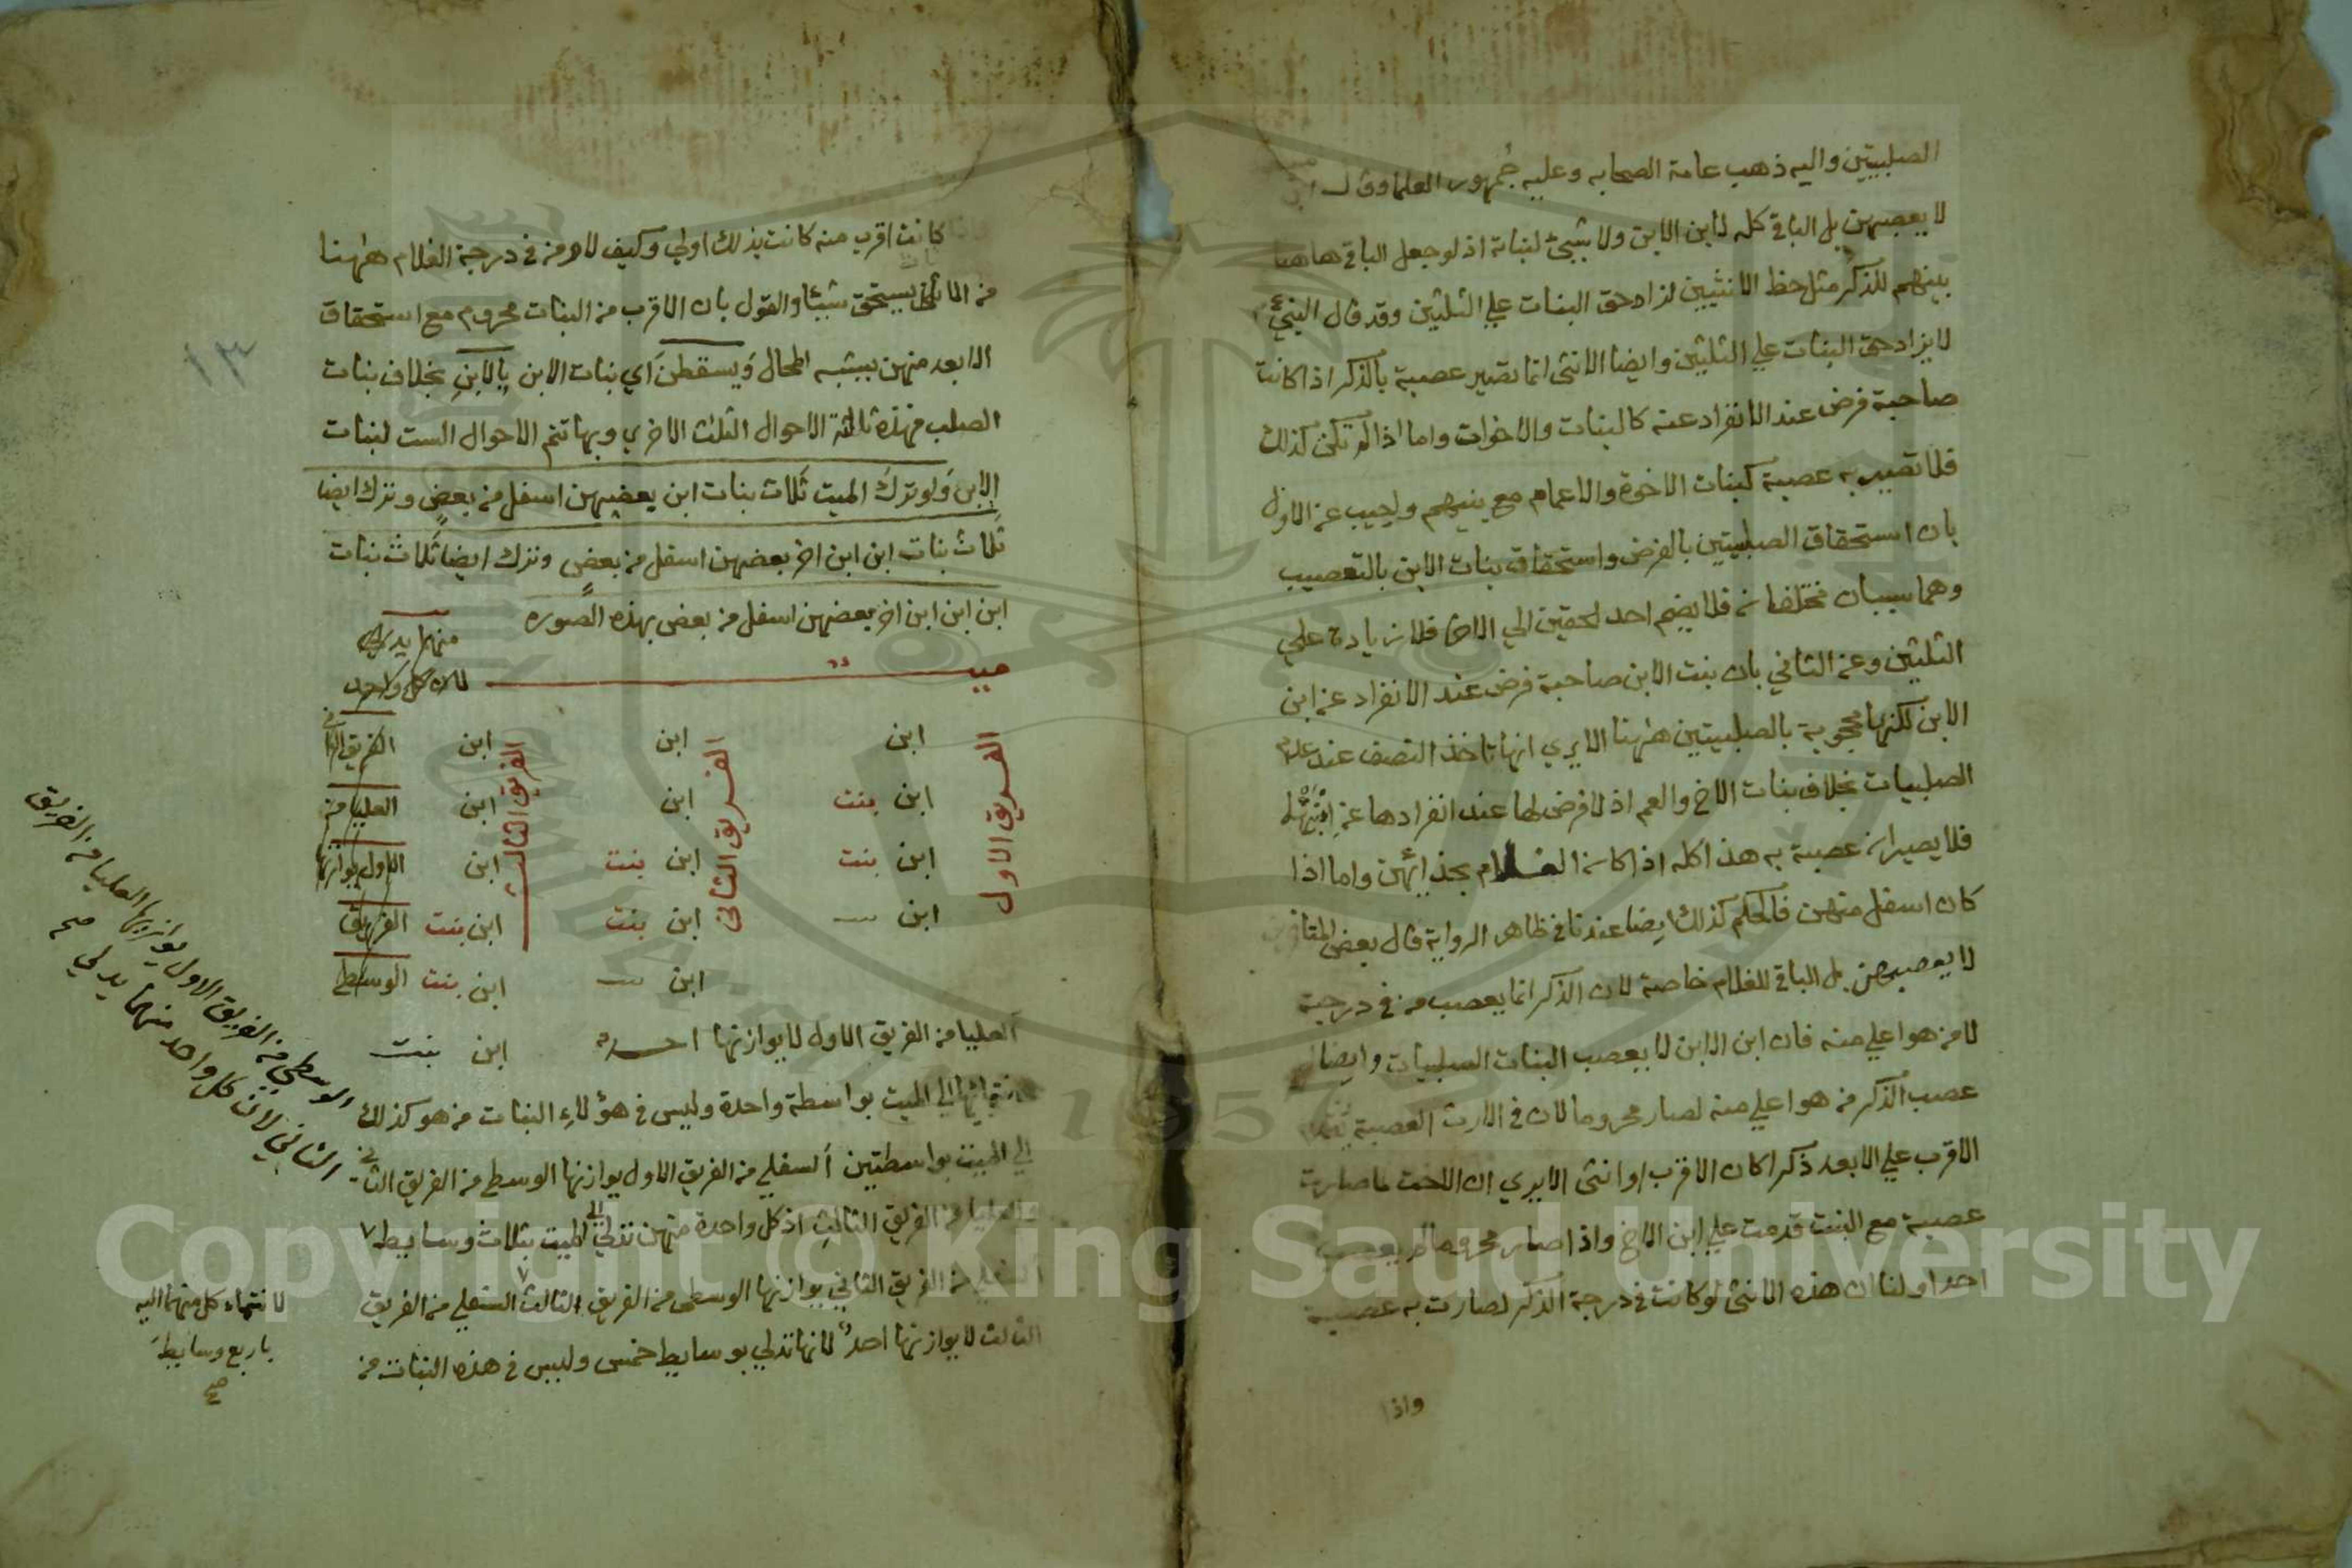 الصلبيتين واليه ذهب عامة الصحابه وعليه جُمهور العلما وقال ابن
لا يعصبهن بل الباقي كله لابن الابن ولا شيئ لبناته اذ لو جعل الباقي هاهنا
بينهم للذكر مثل حظ الانثيين لزاد حق البنات علي الثلثين وقد قال النبي
لا يزاد حق البنات علي الثلثين وايضا الانثى انما تصير عصبة بالذكر اذا كانت
صاحبة فرض عند الانفراد عنه كالبنات والاخوات واما اذا لم تكن كذلك
فلا تصير به عصبة كبنات الاخوة والاعمام مع بنيهم واجيب عن الاول
بان استحقاق الصلبيتين بالفرض واستحقاق بنات الابن بالتعصيب
وهما سببان مختلفان فلا يضم احد الحقين الي الاخر فلا زيادة علي
الثلثين وعن الثاني بان بنت الابن صاحبة فرض عند الانفراد عن ابن
الابن لكنها محجوبة بالصلبيتين ههنا الا يري انها تاخذ النصف عند عدم
الصلبيات بخلاف بنات الاخ والعم اذ لا فرض لها عند انفرادها عن
فلا يصيران عصبة به هذا كله اذا كان الغلام بحذائهن واما اذا
كان اسفل منهن فالحكم كذلك ايضا عندنا في ظاهر الرواية قال بعض
لا يعصبهن بل الباقي للغلام خاصة لان الذكر انما يعصب من في درجته
لا من هو اعلي منه فان ابن الابن لا يعصب البنات الصلبيات وايضا
عصب الذكر من هو اعلي منه لصار محروما لان في الارث العصبة يقدم
الاقرب علي الابعد ذكرا كان الاقرب او انثى الا يري ان الاخت لما صارت
عصبة مع البنت قدمت علي ابن الاخ واذا صار محروما لم يعصب
احدا ولنا ان هذه الانثى لو كانت في درجة الذكر لصارت به عصبة
واذا
كانت اقرب منه كانت بذلك اولي وكيف لا ومن في درجة الغلام ههنا
من الاناث يستحق شيئا والقول بان الاقرب من البنات محروم مع استحقاق
الابعد منهن يشبه المحال وَيسقطن أي بنات الابن بالابنِ بخلاف بنات
الصلب فهذه ثالثة الاحوال الثلث الاخري وبها تتم الاحوال الست لبنات
الابن وَلو ترك الميت ثلاث بنات ابن بعضهن اسفل من بعض وترك ايضا
ثلاث بنات ابن ابن اخر بعضهن اسفل من بعض وترك ايضا ثلاث بنات
ابن ابن ابن اخر بعضهن اسفل من بعض بهذه الصوره
ميت
الفريق الاول
ابن
ابن بنت
ابن بنت
ابن
الفريق الثاني
ابن
ابن
ابن بنت
ابن بنت
ابن
الفريق الثالث
ابن
ابن
ابن
ابن بنت
ابن بنت
ابن بنت
منهما يدلي
لان كل واحد
الفريق الثاني
العليا من
الاول يوازنها
الفريق
الوسطي
العليا من الفريق الاول لا يوازنها احد
لانتمائها الي الميت بواسطة واحدة وليس في هؤلاء البنات من هو كذلك
الي الميت بواسطتين ألسفلي من الفريق الاول يوازنها الوسطي من الفريق الثاني
والعليا من الفريق الثالث اذ كل واحدة منهن تدلي الي الميت بثلاث وسايط
السفلي من الفريق الثاني يوازنها الوسطي من الفريق الثالث السفلي من الفريق
الثالث لا يوازنها احدٌ لانها تدلي بوسايط خمس وليس في هذه البنات من
الوسطي من الفريق الاول يوازيها العليا من الفريق
الثاني لان كل واحد منهما يدلي صح
لانتماء كل منهما اليه
باربع وسايط
صح
١٣
Copyright © King Saud University
1957